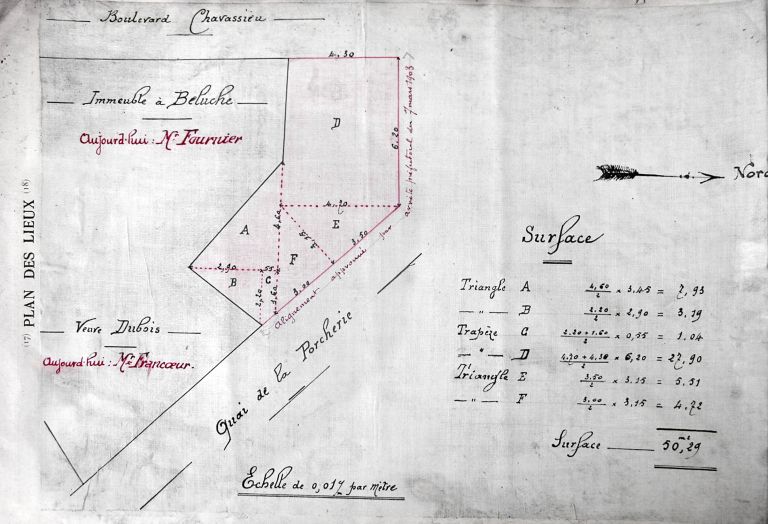 Boulevard Chavassieu
Immeuble à Beluche
Aujourd'hui: Mr Fournier
4,30
D
6,20
arrêté préfectoral du 7 mars 1903
Nord
4,70
4,60
A
E
3,50
3,15
F
2,90
55
B
C
2,20
1,60
3,00
Alignement approuvé par
(17) PLAN DES LIEUX (18)
Veuve Dubois
Aujourd'hui: Mr Francœur.
Quai de la Porcherie
Echelle de 0,017 par mètre
Surface
Triangle A 4,60/2 × 3.45 = 7,93
— " — B 2.20/2 × 2,90 = 3,19
Trapèze C 2.20+1.60/2 × 0,55 = 1.04
— " — D 4.70+4.30/2 × 6,20 = 27,90
Triangle E 3,50/2 × 3.15 = 5,51
— " — F 3,00/2 × 3.15 = 4,72
Surface 50m2,29